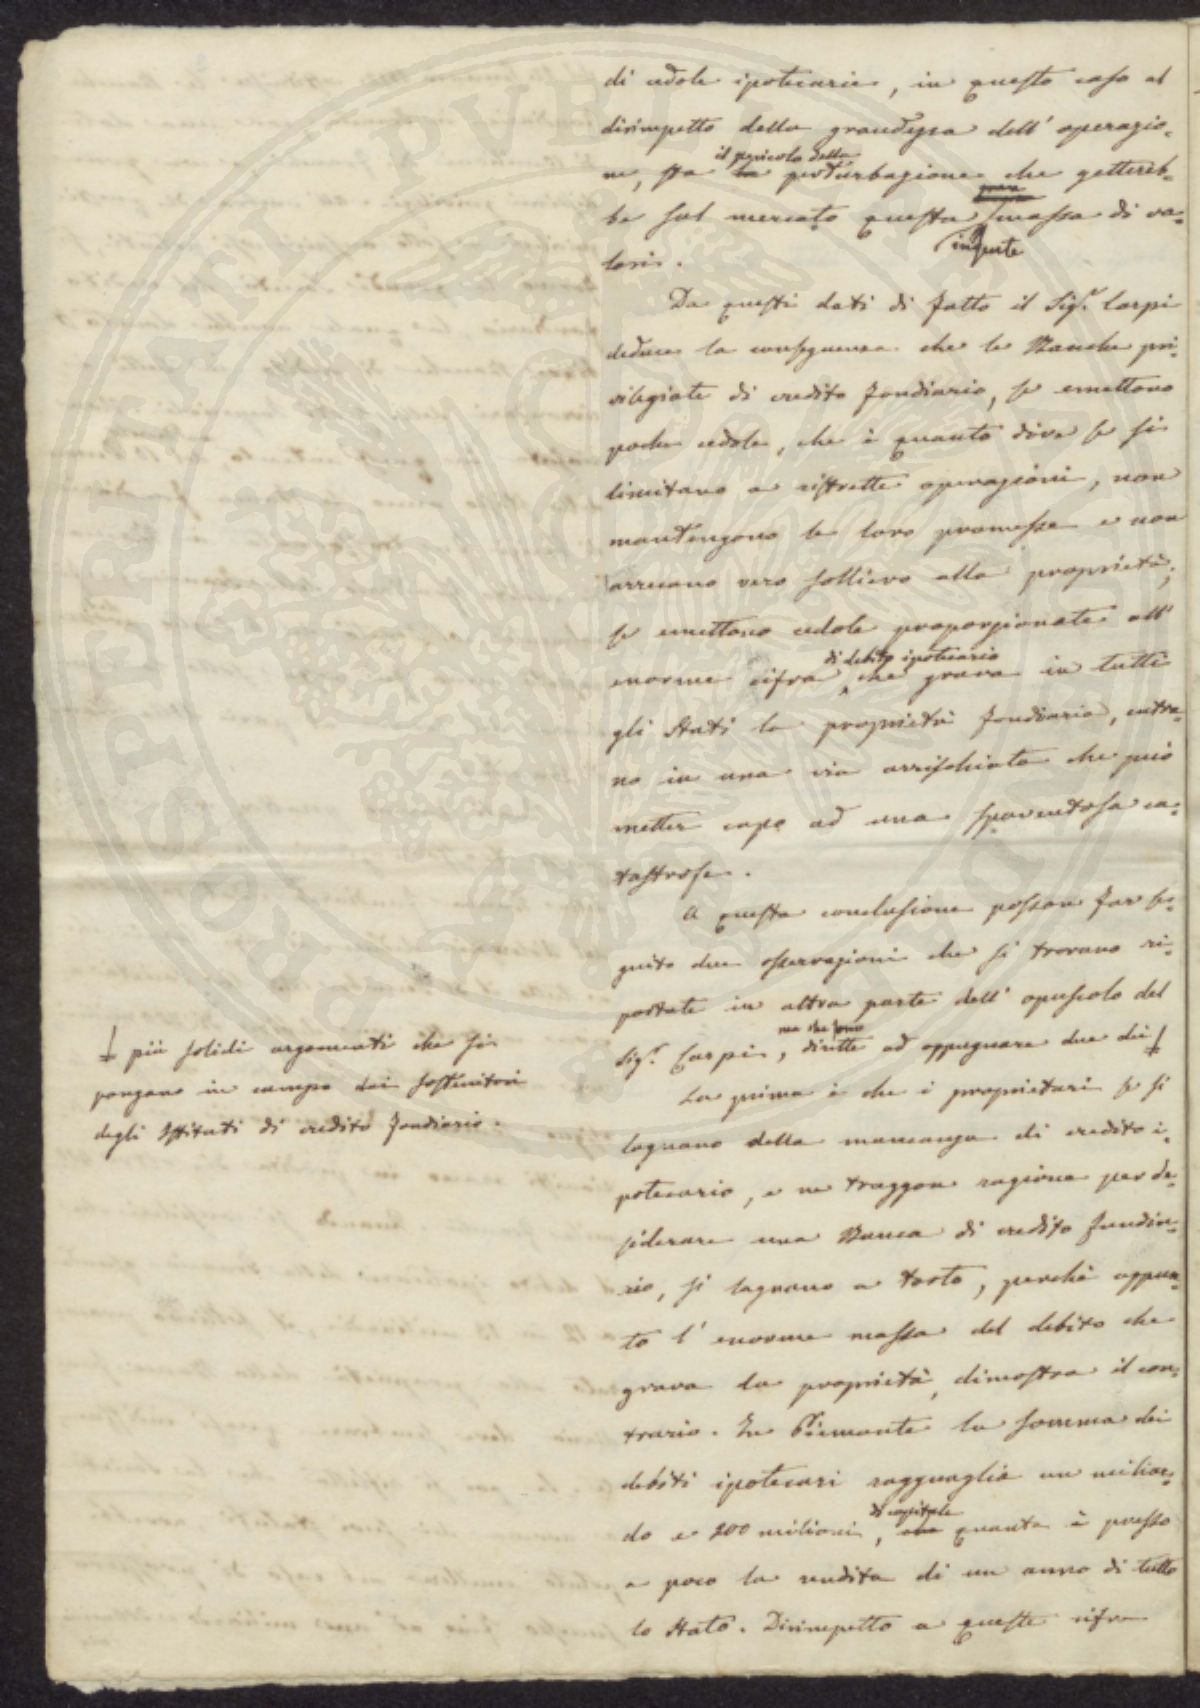 di cedole ipotecarie, in questo caso al
dirimpetto della grandezza dell' operazio-
ne, sta il pericolo della perturbazione che gettereb-
be sul mercato questa ingente massa di va-
lori.
Da questi dati di fatto il Sig.r Carpi
deduce la conseguenza che le Banche pri-
vilegiate di credito fondiario, se emettono
poche cedole, che è quanto dire se si
limitano a ristrette operazioni, non
mantengono le loro promesse e non
arrecano vero sollievo alla proprietà;
se emettono cedole proporzionate all'
enorme cifra di debito ipotecario che grava in tutti
gli Stati la proprietà fondiaria, entra-
no in una via arrischiata che può
metter capo ad una spaventosa ca-
tastrofe.
A questa conclusione possono far se-
guito due osservazioni che si trovano ri-
portate in altra parte dell' opuscolo del
Sig.r Carpi, ma che sono dirette ad oppugnare due dei
più solidi argomenti che si
pongano in campo dai sostenitori
degli Istituti di credito fondiario.
La prima è che i proprietari se si
lagnano della mancanza di credito i-
potecario, e ne traggon ragione per de-
siderare una Banca di credito fondia-
rio, si lagnano a torto, perchè appun-
to l' enorme massa del debito che
grava la proprietà, dimostra il con-
trario. In Piemonte la somma dei
debiti ipotecari ragguaglia un miliar-
do e 200 milioni, di capitale quanta è presso
a poco la rendita di un anno di tutto
lo Stato. Dirimpetto a queste cifre